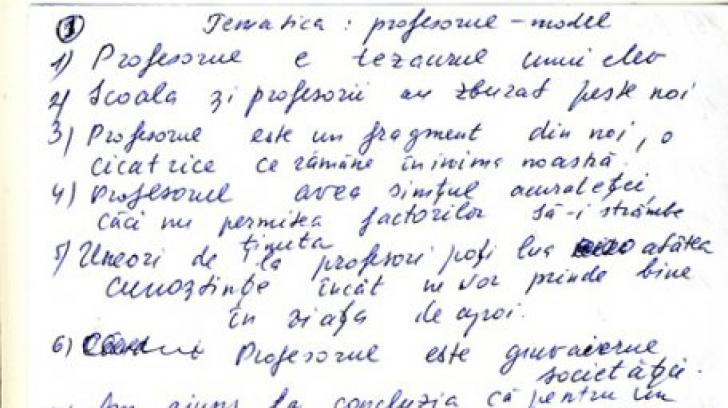 1 Tematica : profesorul - model
1) Profesorul e tezaurul unui elev
2) Școala și profesorii au zburat peste noi
3) Profesorul este un fragment din noi, o
cicatrice ce rămâne în inima noastră.
4) Profesorul avea simțul acurateții,
căci nu permitea factorilor să-i strâmbe
ținuta
5) Uneori de la profesori poți lua atâtea
cunoștințe încât ne vor prinde bine
în viața de apoi.
6) Profesorul este giuvaierul
societății.
Am ajuns la concluzia că pentru un